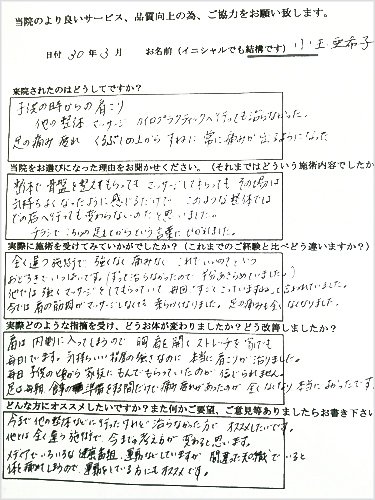 当院のより良いサービス、品質向上の為、ご協力をお願い致します。
日付 30年 3月 お名前（イニシャルでも結構です）小玉 亜希子
来院されたのはどうしてですか？
子供の時からの肩こり
他の整体 マッサージ カイロプラクティックへ行っても治らなかった。
足の痛み 疲れ くるぶしの上から すねに 常に痛みが出るようになった
当院をお選びになった理由をお聞かせください。（それまではどういう施術内容でしたか
整体で 骨盤を整えてもらっても マッサージしてもらっても その場は
気持ちよくなったように感じるだけで このような整体では
どの店へ行っても変わらないのだと思いました。
チラシで ころめの足もとからという言葉にひかれました。
実際に施術を受けてみていかがでしたか？（これまでのご経験と比べどう違いますか？）
全く違う施術で 強くなく痛みなく これでいいの？という
おどろきでいっぱいです。（すっと治らなかったので 半分あきらめていました）
他では 強くマッサージをしてもらっていて 毎回 すごくこっていますねって言われていました。
今では肩の筋肉がマッサージしなくても 柔らかくなりました。足の痛みも全くなくなりました。
実際どのような指摘を受け、どうお体が変わりましたか？どう改善しましたか？
肩は 内側に入ってしまうので 胸 肩を開く ストレッチを家でも
毎日しています。気持ちいい程度の強さなのに 本当に肩こりが治りました。
毎日 子供の頃から 家族に もんでもらっていたのが 信じられません。
足は毎朝 食事の準備を短時間だけで痛み疲れがあったのが 全くなくなり 本当に良かったです。
どんな方にオススメしたいですか？また何かご要望、ご意見等ありましたらお書き下さい
今まで他の整体などに行ったけれど治らなかった方に オススメしたいです。
他とは全く違う施術で、今までの考え方が変わると思います。
メディアでいろいろな健康番組、運動などしていますが 間違った知識でいると
体を痛めてしまうので、運動をしている方にもオススメです。